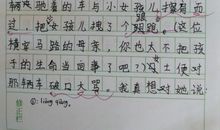 辆飞驰着的车与小女孩儿擦肩而
过，把女孩儿拽了个跟跟。（这位
横穿马路的母亲，你也太不把孩
子的生命当回事了吧？）便对
那辆车破口大骂。我真想对她说：
修正栏
①: liàng qiàng.